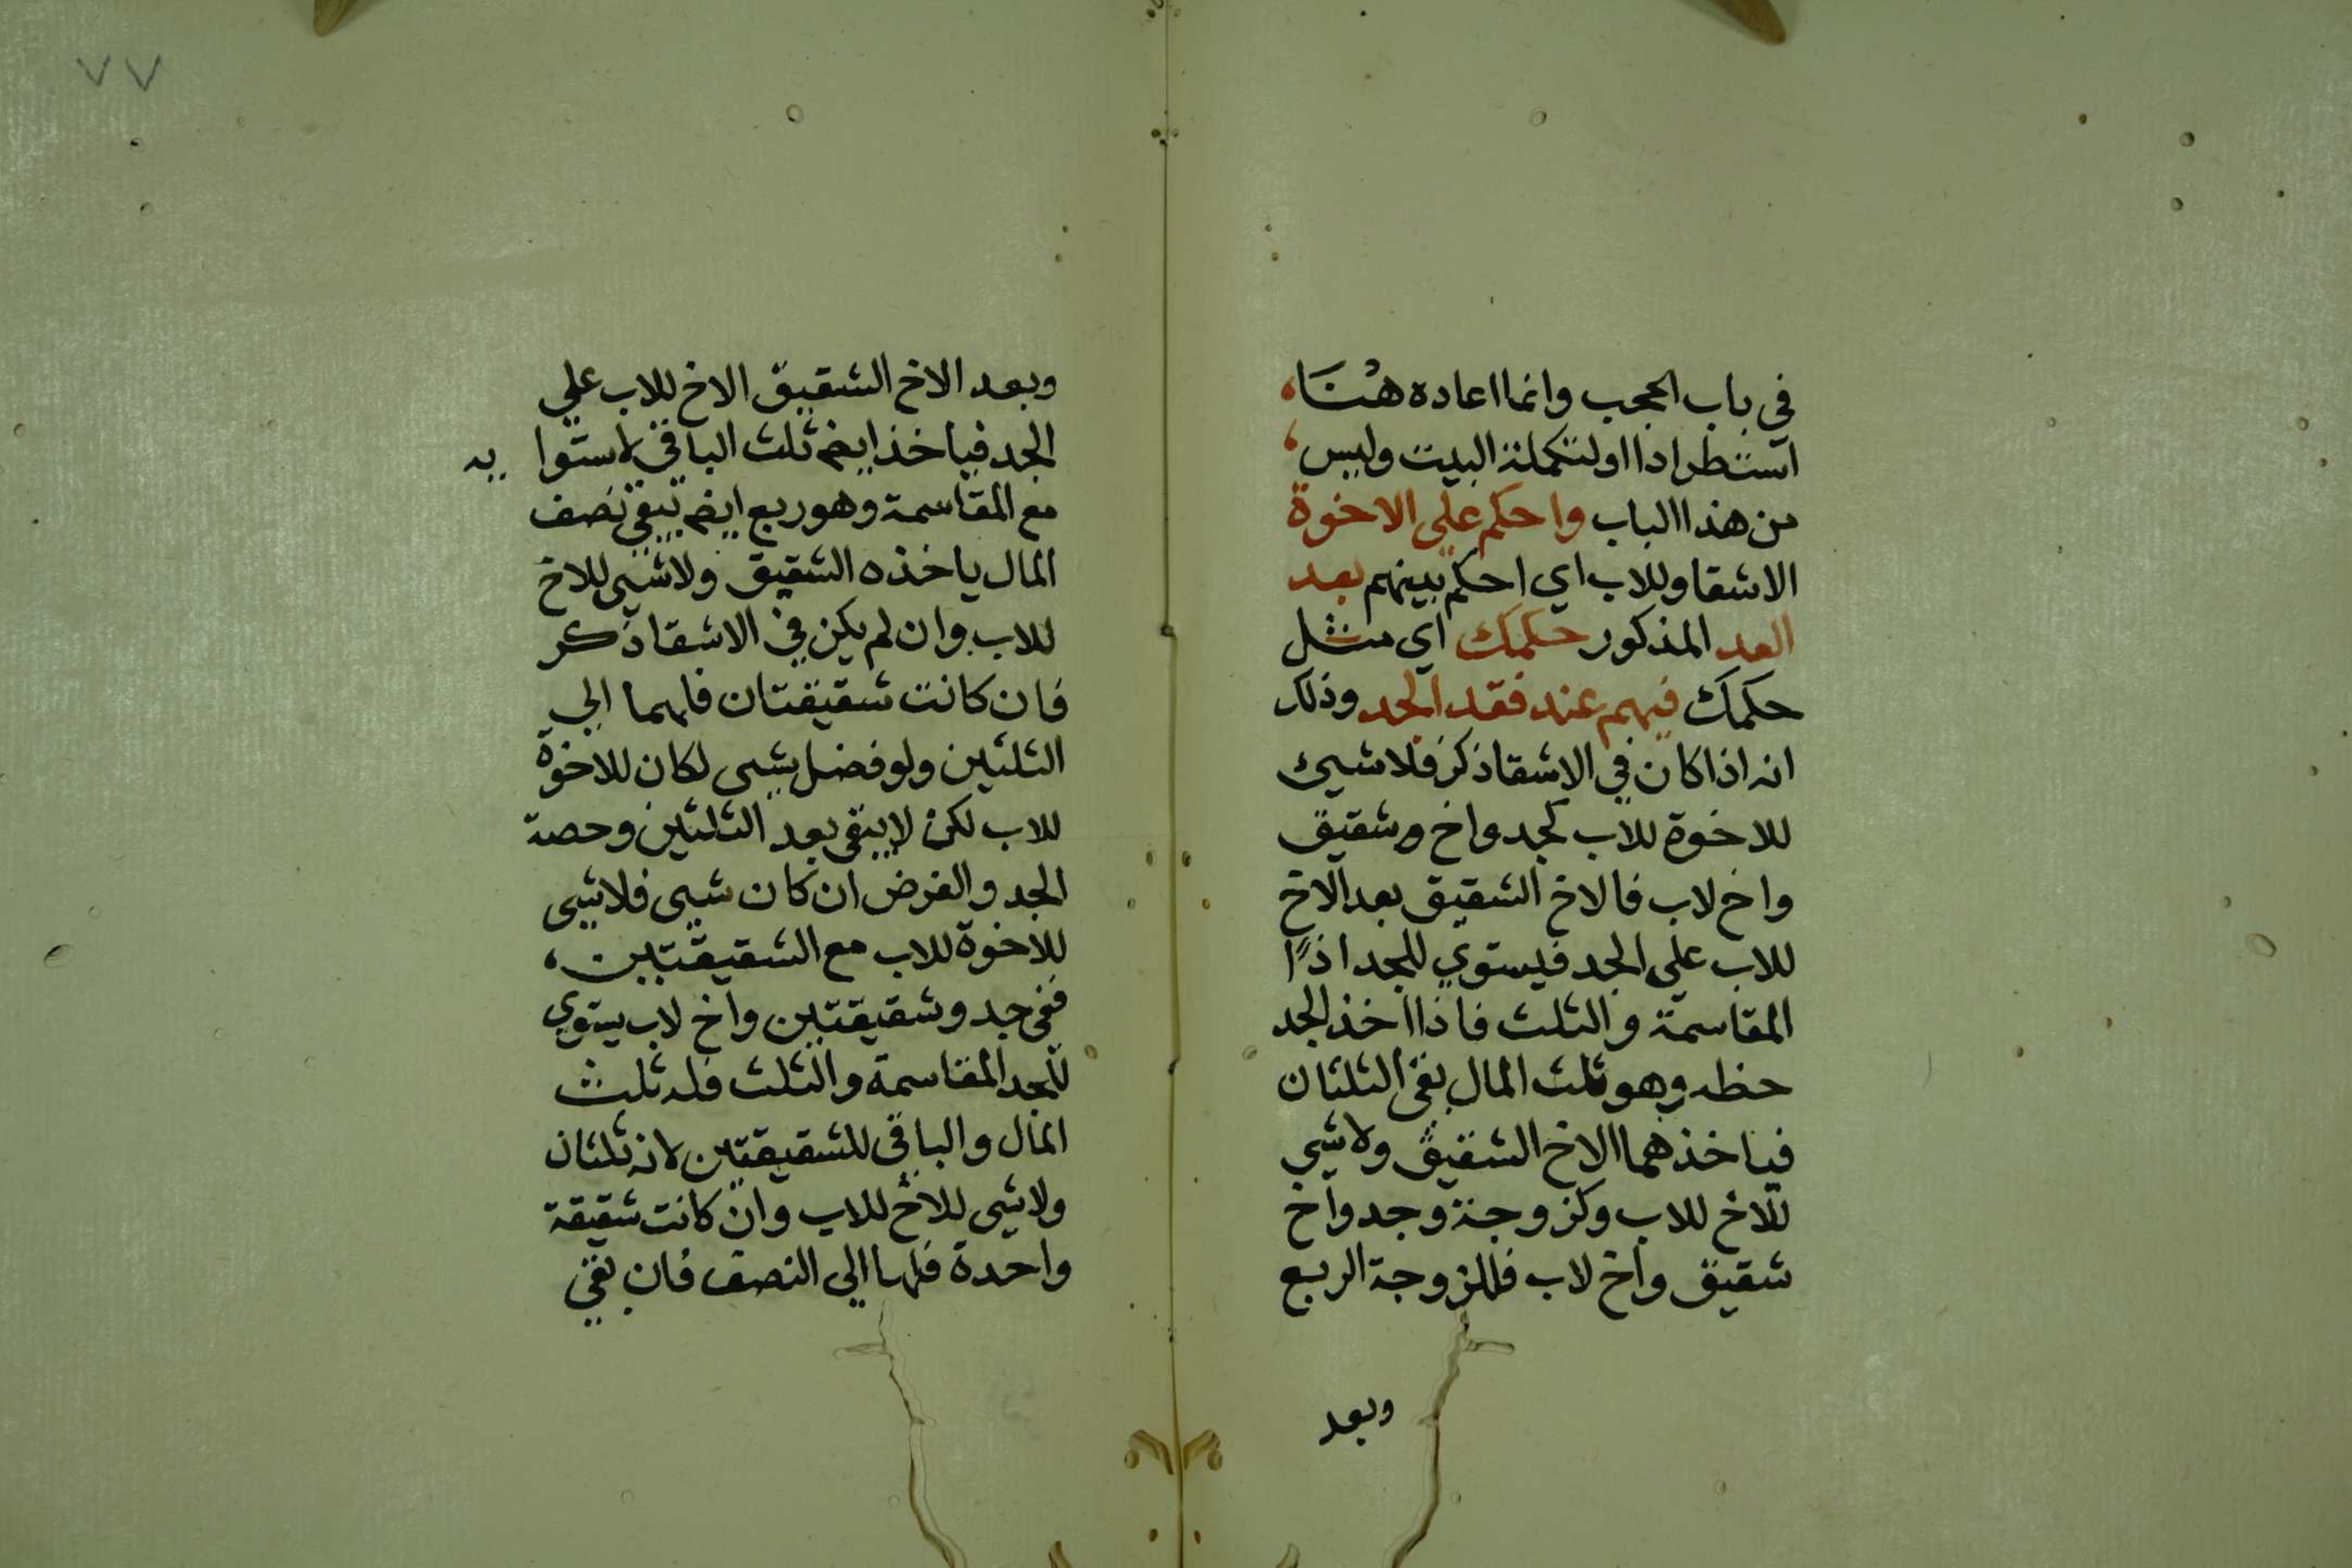 في باب الحجب وانما اعاده هنا،
استطرادا اولتكملة البيت وليس،
من هذا الباب واحكم على الاخوة
الاشقا وللاب اي احكم بينهم بعد
العد المذكور حكمك اي مثل
حكمك فيهم عند فقد الجد وذلك
انه اذا كان في الاشقا ذكر فلا شيئ
للاخوة للاب كجد واخ وشقيق
واخ لاب فالاخ الشقيق يعد الاخ
للاب علي الجد فيستوي للجد اذًا
المقاسمة والثلث فاذا اخذ الجد
حظه وهو ثلث المال بقى الثلثان
فياخذهما الاخ الشقيق ولا شي
للاخ للاب وكزوجة وجد واخ
شقيق واخ لاب فللزوجة الربع
وبعد
٧٧
وبعد الاخ الشقيق الاخ للاب علي
الجد فياخذ ايضم ثلث الباقي لاستوايه
مع المقاسمة وهو ربع ايضم يبقي نصف
المال ياخذه الشقيق ولا شيى للاخ
للاب وان لم يكن في الاشقا ذكر
فان كانت شقيقتان فلهما الي
الثلثين ولو فضل شيى لكان للاخوة
للاب لكن لا يبقى بعد الثلثين وحصة
الجد والفرض ان كان شيى فلا شيى
للاخوة للاب مع الشقيقتين،
ففي جد وشقيقتين واخ لاب يستوي
للجد المقاسمة والثلث فله ثلث
المال والباقي للشقيقتين لانه ثلثان
ولا شى للاخ للاب وان كانت شقيقة
واحدة فلها الي النصف فان بقي